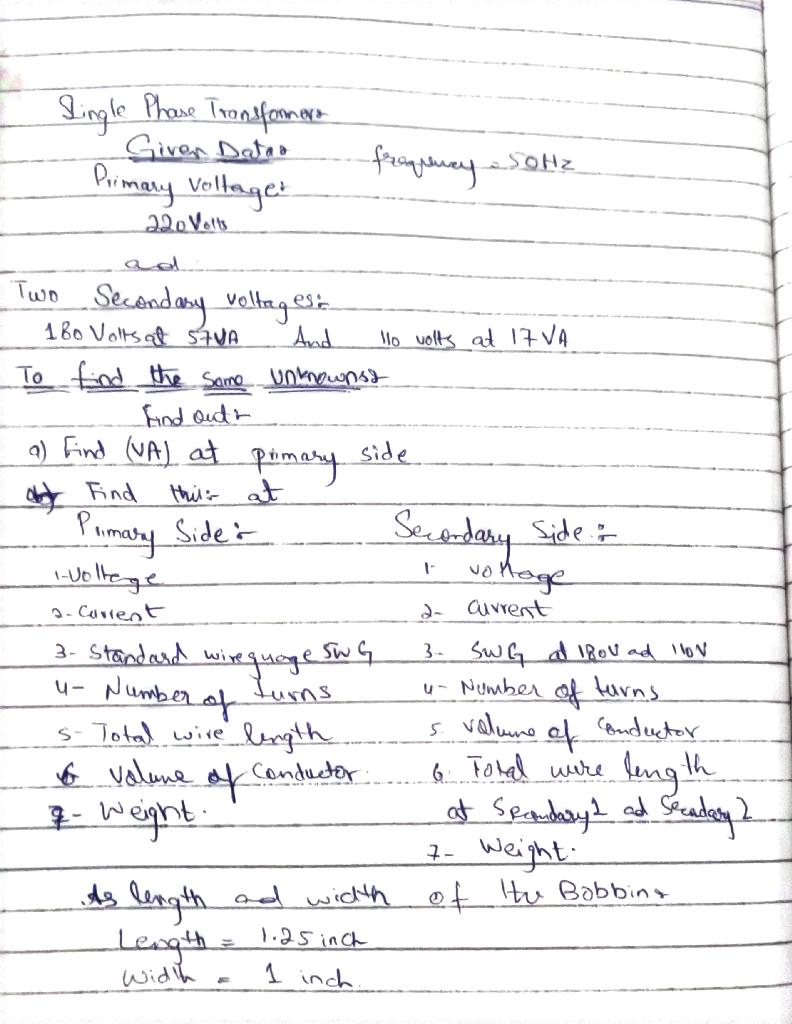 Single Phase Transformer
Given Data frequency = 50Hz
Primary Voltage:
220 Volts
and
Two Secondary voltages:
180 Volts at 57VA And 110 volts at 17 VA
To find the some unknowns:
Find out:
a) Find (VA) at primary side
Find this:- at
Primary Side:- Secondary Side:-
1-Voltage 1- voltage
2- Current 2- Current
3- Standard wireguage SWG 3- SWG at 180V ad 110V
4- Number of turns 4- Number of turns
5- Total wire length 5. volume of Conductor
6 Volume of Conductor. 6. Total wire length
7- Weight. at Secondary1 ad Secondary 2
7- Weight.
As length and width of the Bobbin:
Length = 1.25 inch
Width = 1 inch.